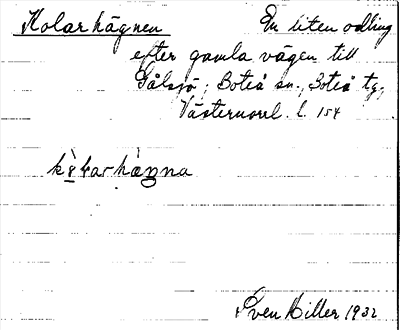 Kolarhägnen En liten odling
efter gamla vägen till
Gålsjö, Boteå sn., Boteå tg,
Västernorrl. l. 154
Sven Hiller 1932